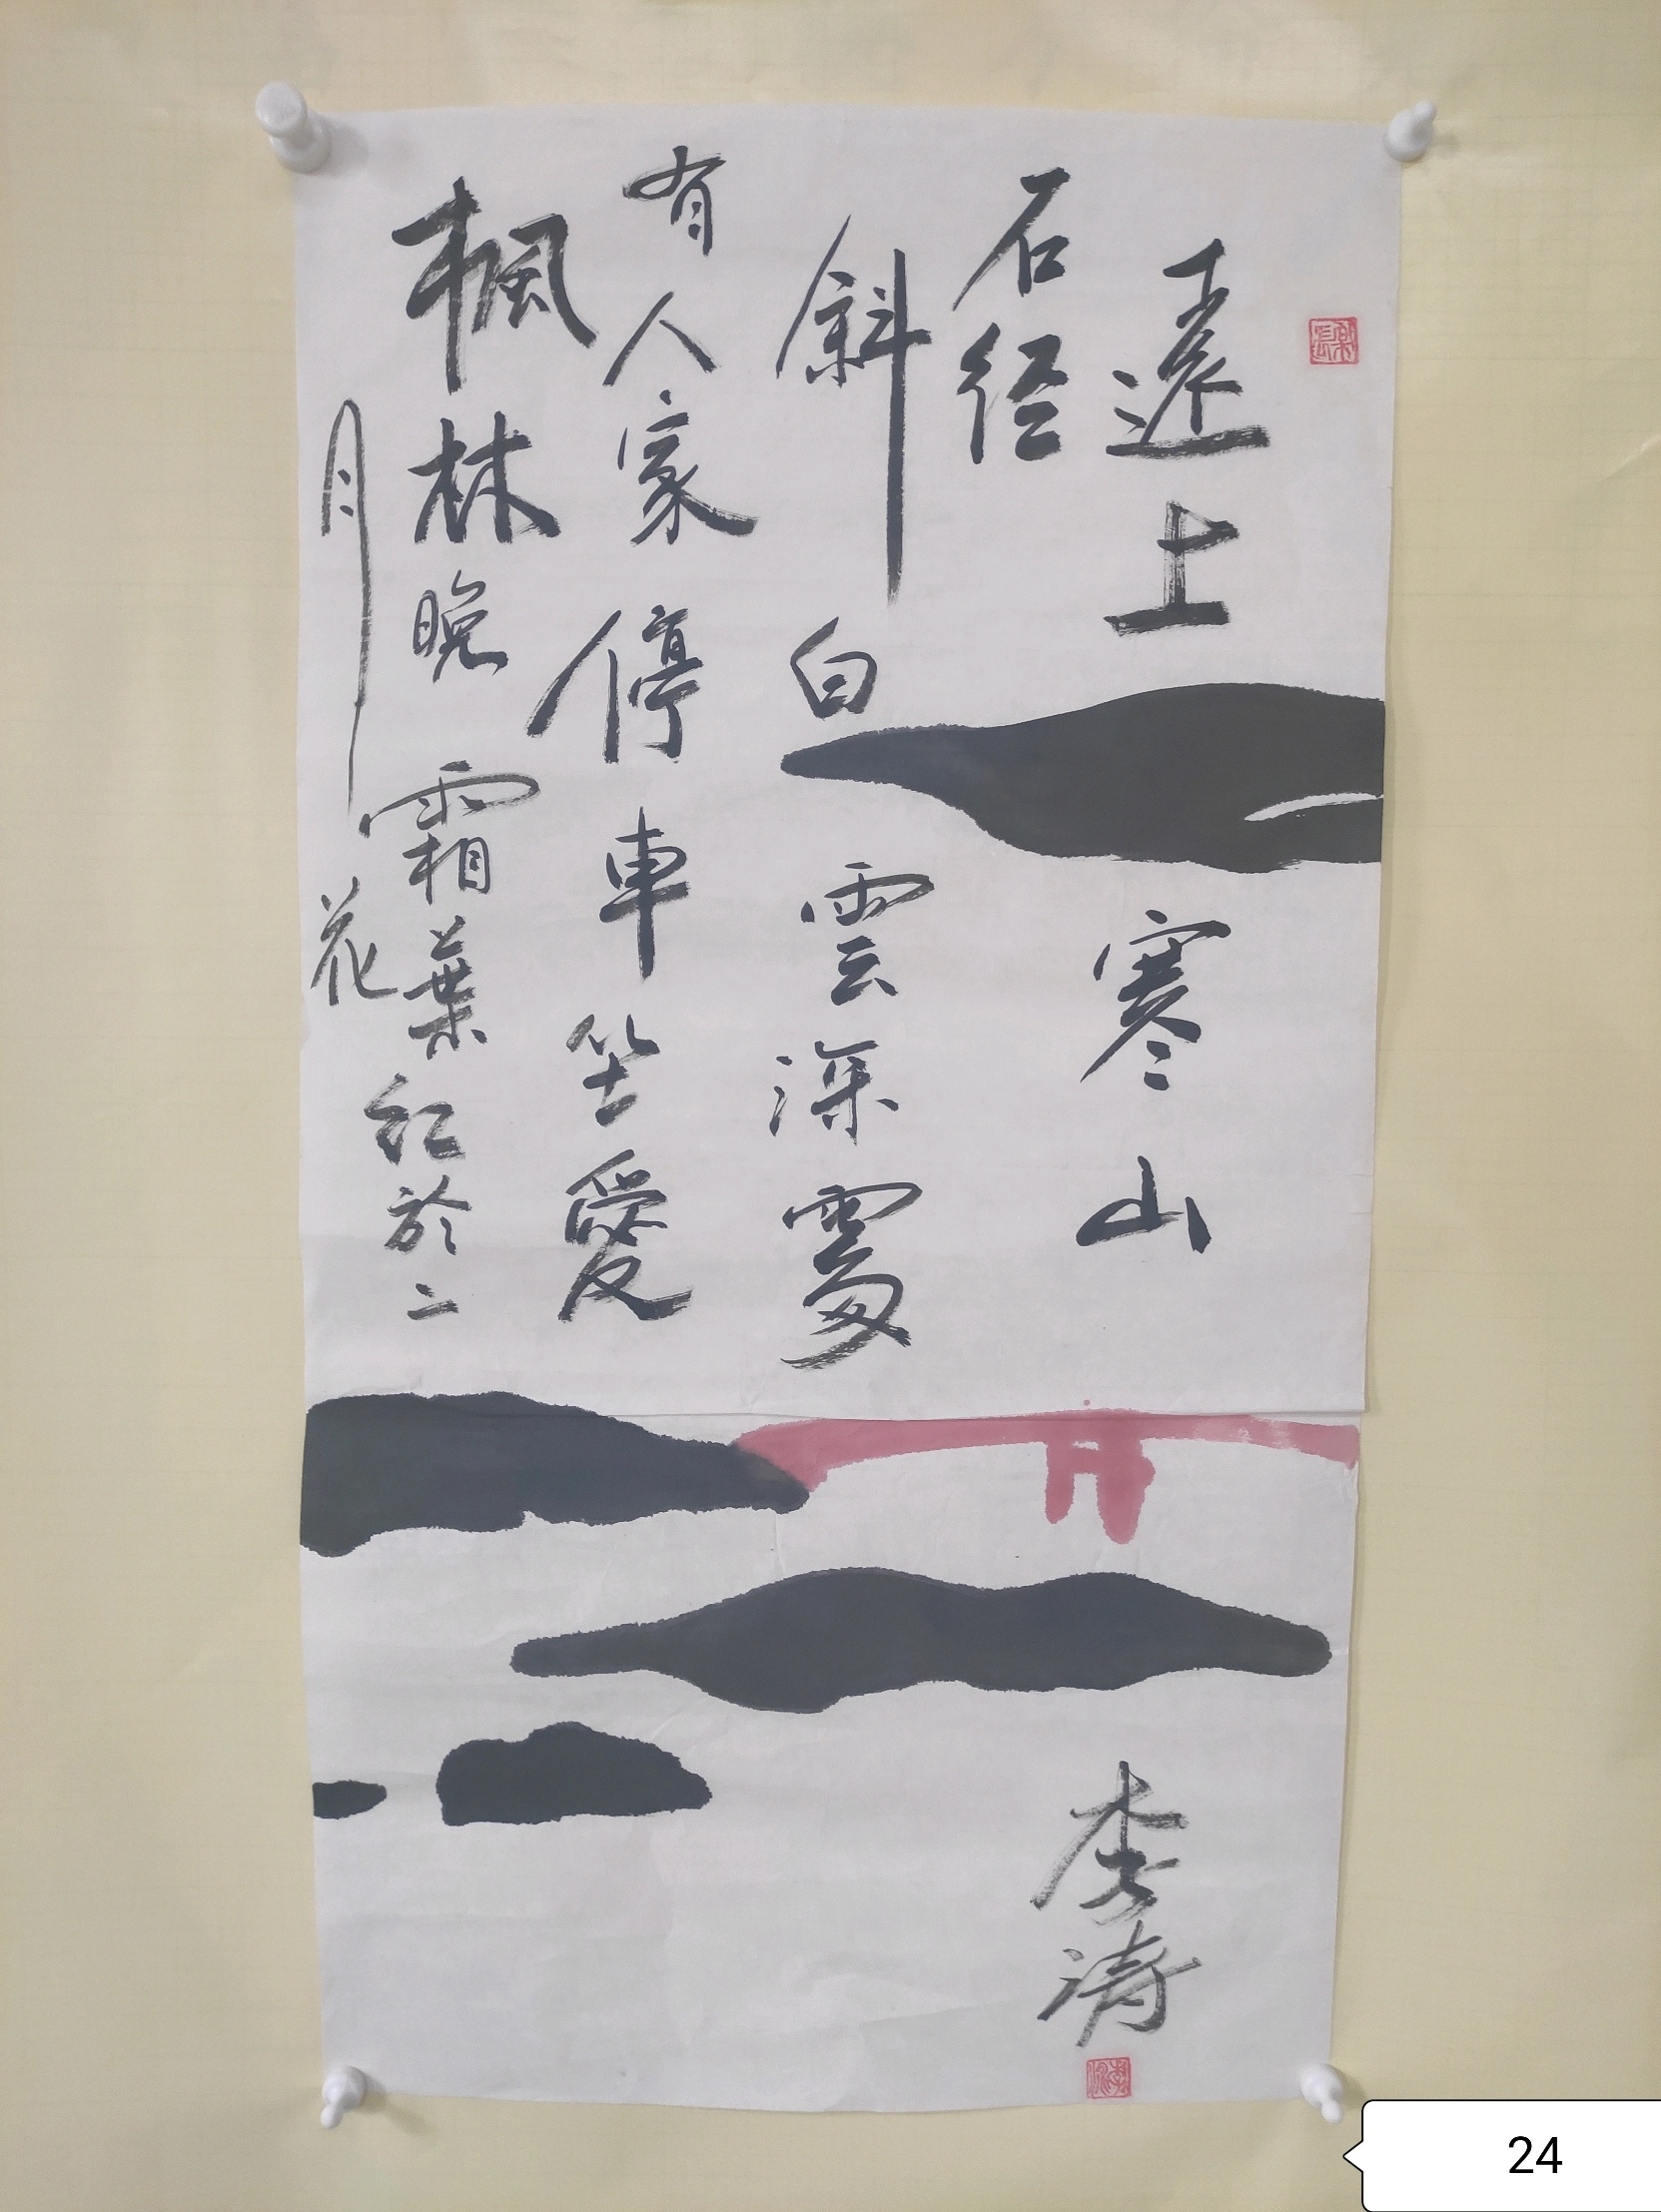 遠上寒山
石径
斜白雲深處
有人家停車坐愛
楓林晚霜葉紅於二
月花
李涛
24